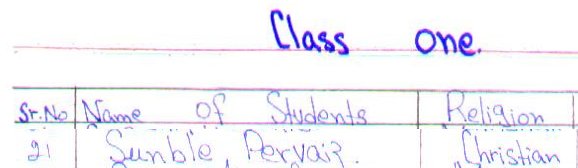 Class one.
Sr.No Name of Students Religion
21 Sunble Pervaiz. Christian